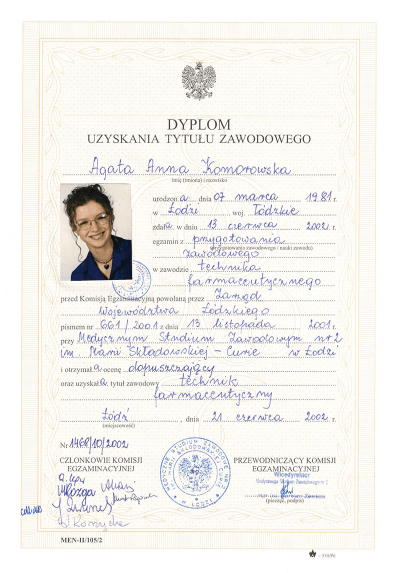 DYPLOM
UZYSKANIA TYTUŁU ZAWODOWEGO
Agata Anna Komorowska
imię (imiona) i nazwisko
urodzona dnia 07 marca 1981 r.
w Łodzi woj. łódzkie
zdała w dniu 13 czerwca 2002 r.
egzamin z przygotowania
(przygotowania zawodowego / nauki zawodu)
zawodowego
w zawodzie technika
farmaceutycznego
przed Komisją Egzaminacyjną powołaną przez Zarząd
Województwa Łódzkiego
pismem nr 661/2001 z dnia 13 listopada 2001 r.
przy Medycznym Studium Zawodowym nr 2
im. Marii Skłodowskiej - Curie w Łodzi
i otrzymała ocenę dopuszczający
oraz uzyskała tytuł zawodowy technik
farmaceutyczny
Łódź, dnia 21 czerwca 2002 r.
(miejscowość)
Nr 1468/10/2002
CZŁONKOWIE KOMISJI
EGZAMINACYJNEJ
PRZEWODNICZĄCY KOMISJI
EGZAMINACYJNEJ
(pieczęć, podpis)
MEN-II/105/2